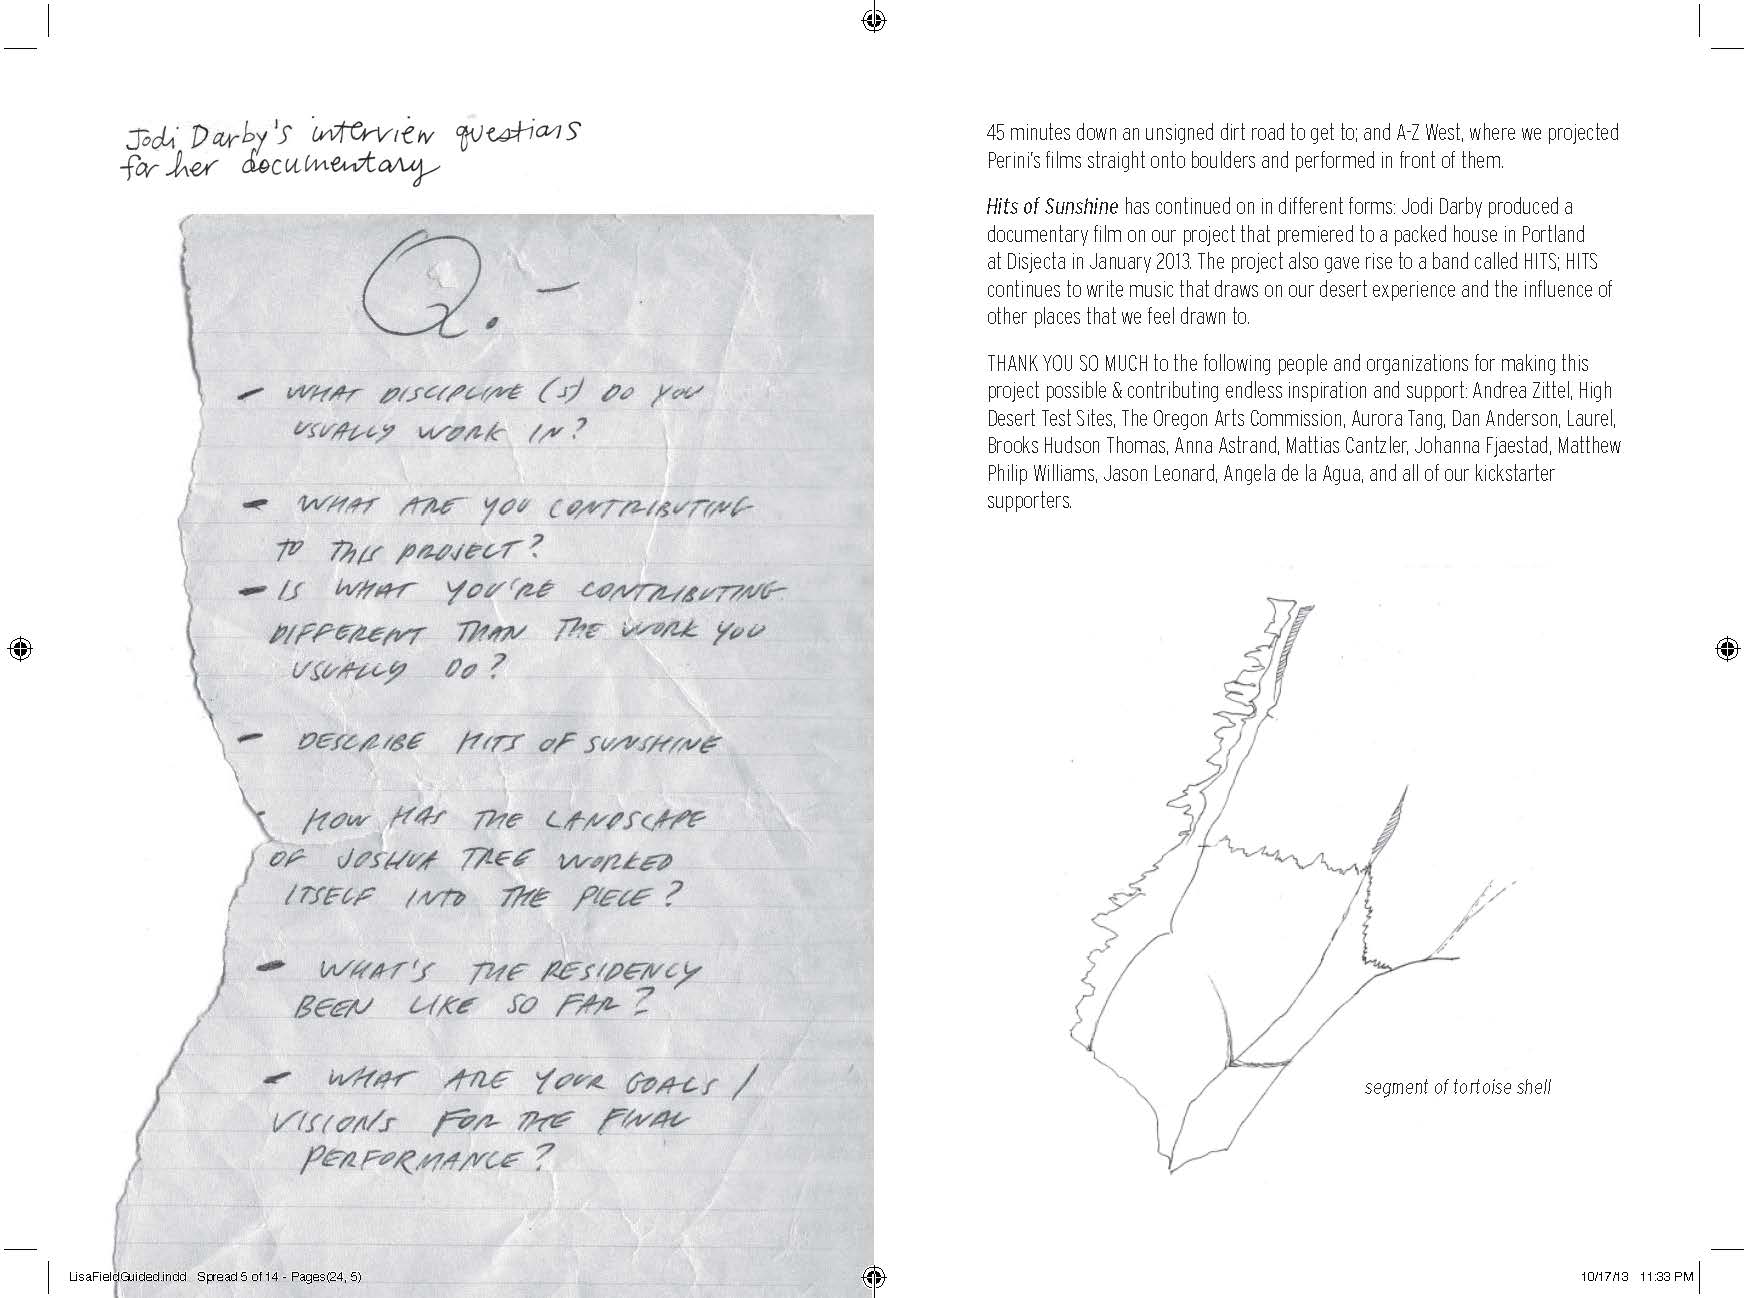 Jodi Darby's interview questions
for her documentary
Q. -
- WHAT DISCIPLINE (S) DO YOU
USUALLY WORK IN?
- WHAT ARE YOU CONTRIBUTING
TO THIS PROJECT?
- IS WHAT YOU'RE CONTRIBUTING
DIFFERENT THAN THE WORK YOU
USUALLY DO?
- DESCRIBE HITS OF SUNSHINE
- HOW HAS THE LANDSCAPE
OF JOSHUA TREE WORKED
ITSELF INTO THE PIECE?
- WHAT'S THE RESIDENCY
BEEN LIKE SO FAR?
- WHAT ARE YOUR GOALS /
VISIONS FOR THE FINAL
PERFORMANCE?
45 minutes down an unsigned dirt road to get to; and A-Z West, where we projected
Perini's films straight onto boulders and performed in front of them.
Hits of Sunshine has continued on in different forms: Jodi Darby produced a
documentary film on our project that premiered to a packed house in Portland
at Disjecta in January 2013. The project also gave rise to a band called HITS; HITS
continues to write music that draws on our desert experience and the influence of
other places that we feel drawn to.
THANK YOU SO MUCH to the following people and organizations for making this
project possible & contributing endless inspiration and support: Andrea Zittel, High
Desert Test Sites, The Oregon Arts Commission, Aurora Tang, Dan Anderson, Laurel,
Brooks Hudson Thomas, Anna Astrand, Mattias Cantzler, Johanna Fjaestad, Matthew
Philip Williams, Jason Leonard, Angela de la Agua, and all of our kickstarter
supporters.
segment of tortoise shell
LisaFieldGuided.indd   Spread 5 of 14 - Pages(24, 5)
10/17/13   11:33 PM